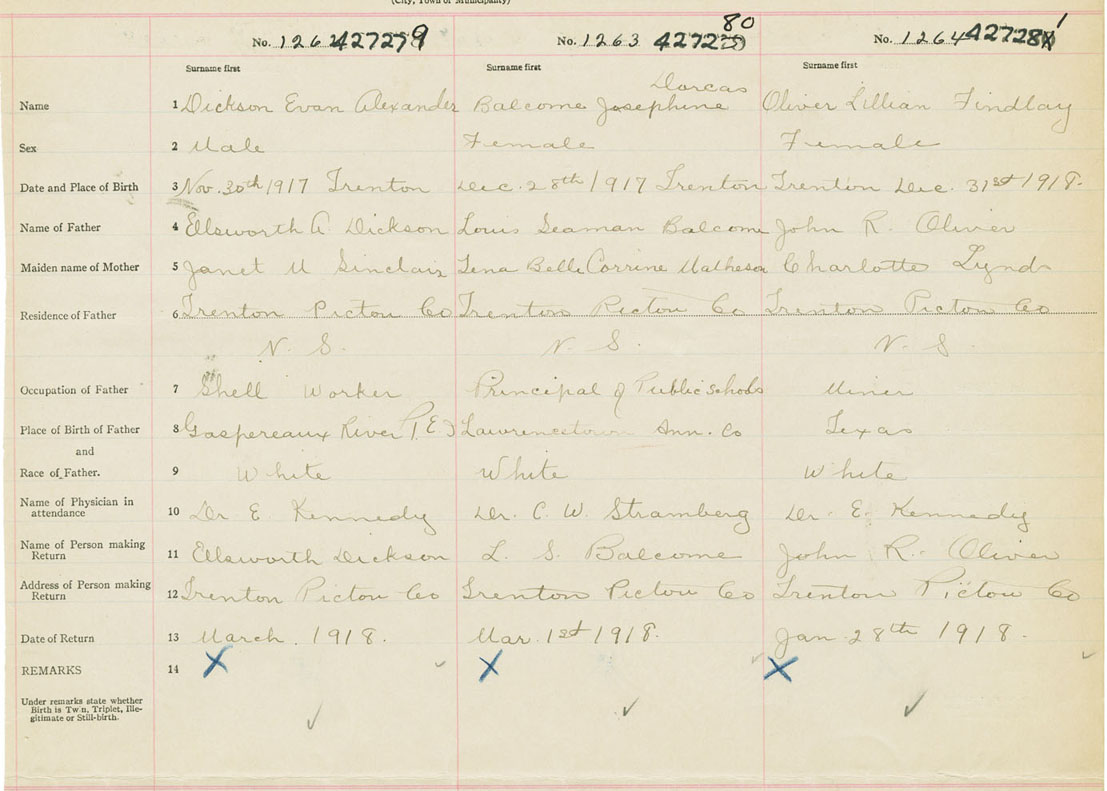 (City, Town or Municipality)
No. 1262 427279 No. 1263 427280 No. 1264 427281
Surname first Surname first Surname first
Dorcas
Name 1 Dickson Evan Alexander Balcome Josephine Oliver Lillian Findlay
Sex 2 Male Female Female
Date and Place of Birth 3 Nov. 30th 1917 Trenton Dec. 28th 1917 Trenton Trenton Dec. 31st 1918.
Name of Father 4 Ellsworth A. Dickson Louis Seaman Balcome John R. Oliver
Maiden name of Mother 5 Janet M Sinclair Lena Belle Corrine Matheson Charlotte Lynds
Residence of Father 6 Trenton Pictou Co Trenton Pictou Co Trenton Pictou Co
N. S. N. S. N. S.
Occupation of Father 7 Shell Worker Principal of Public schools Miner
Place of Birth of Father 8 Gaspereaux River P.E.I Lawrencetown Ann. Co Texas
and
Race of Father. 9 White White White
Name of Physician in
attendance 10 Dr. E. Kennedy Dr. C. W. Stramberg Dr. E. Kennedy
Name of Person making
Return 11 Ellsworth Dickson L. S. Balcome John R. Oliver
Address of Person making
Return 12 Trenton Pictou Co Trenton Pictou Co Trenton Pictou Co
Date of Return 13 March. 1918. Mar. 1st 1918. Jan 28th 1918.
REMARKS 14 X X X
Under remarks state whether
Birth is Twin, Triplet, Ille-
gitimate or Still-birth.